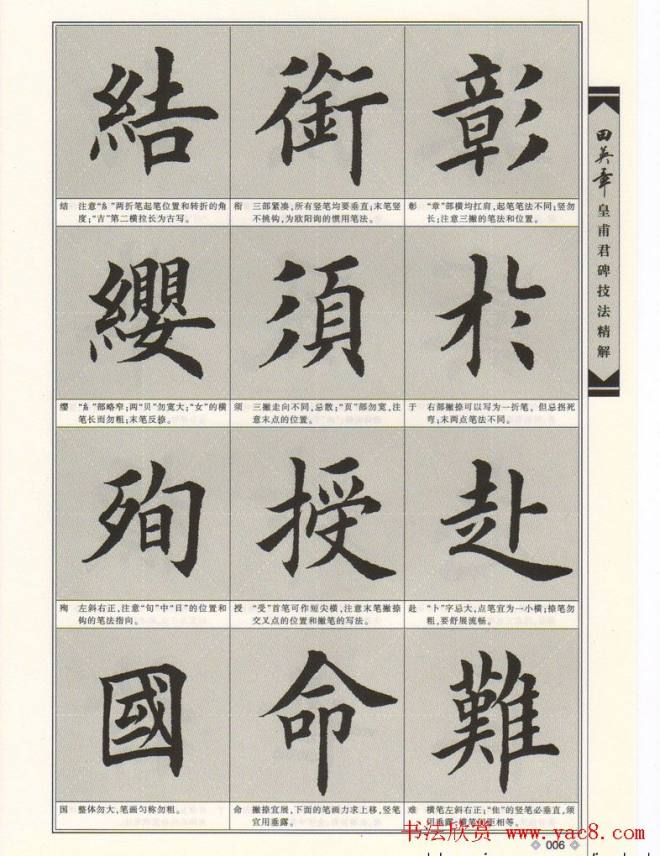 結
銜
彰
结 注意“糹”两折笔起笔位置和转折的角
度；“吉”第二横拉长为古写。
衔 三部紧凑，所有竖笔均要垂直；末笔竖
不挑钩，为欧阳询的惯用笔法。
彰 “章”部横均扛肩，起笔笔法不同；竖勿
长；注意三撇的笔法和位置。
纓
須
於
缨 “糹”部略窄；两“贝”勿宽大；“女”的横
笔长而勿粗；末笔反捺。
须 三撇走向不同，忌散；“页”部勿宽，注
意末点的位置。
于 右部撇捺可以写为一折笔，但忌拐死
弯；末两点笔法不同。
殉
授
赴
殉 左斜右正，注意“旬”中“日”的位置和
钩的笔法指向。
授 “受”首笔可作短尖横，注意末笔撇捺
交叉点的位置和撇笔的写法。
赴 “卜”字忌大，点笔宜为一小横；捺笔勿
粗，要舒展流畅。
國
命
難
国 整体勿大，笔画匀称勿粗。
命 撇捺宜展，下面的笔画力求上移，竖笔
宜用垂露。
难 横笔左斜右正；“隹”的竖笔必垂直，须
用垂露；横笔间距相等。
田英章
皇甫君碑技法精解
书法欣赏 www.yac8.com
006